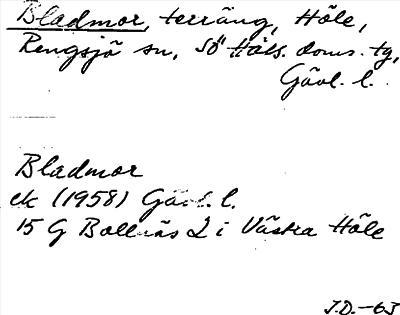 Bladmor, terräng, Höle,
Rengsjö sn, Sö Häls. doms. tg,
Gävl. l.
Bladmor
ek (1958) Gävl. l.
15 G Bollnäs 2 i Västra Höle
J.D.-63